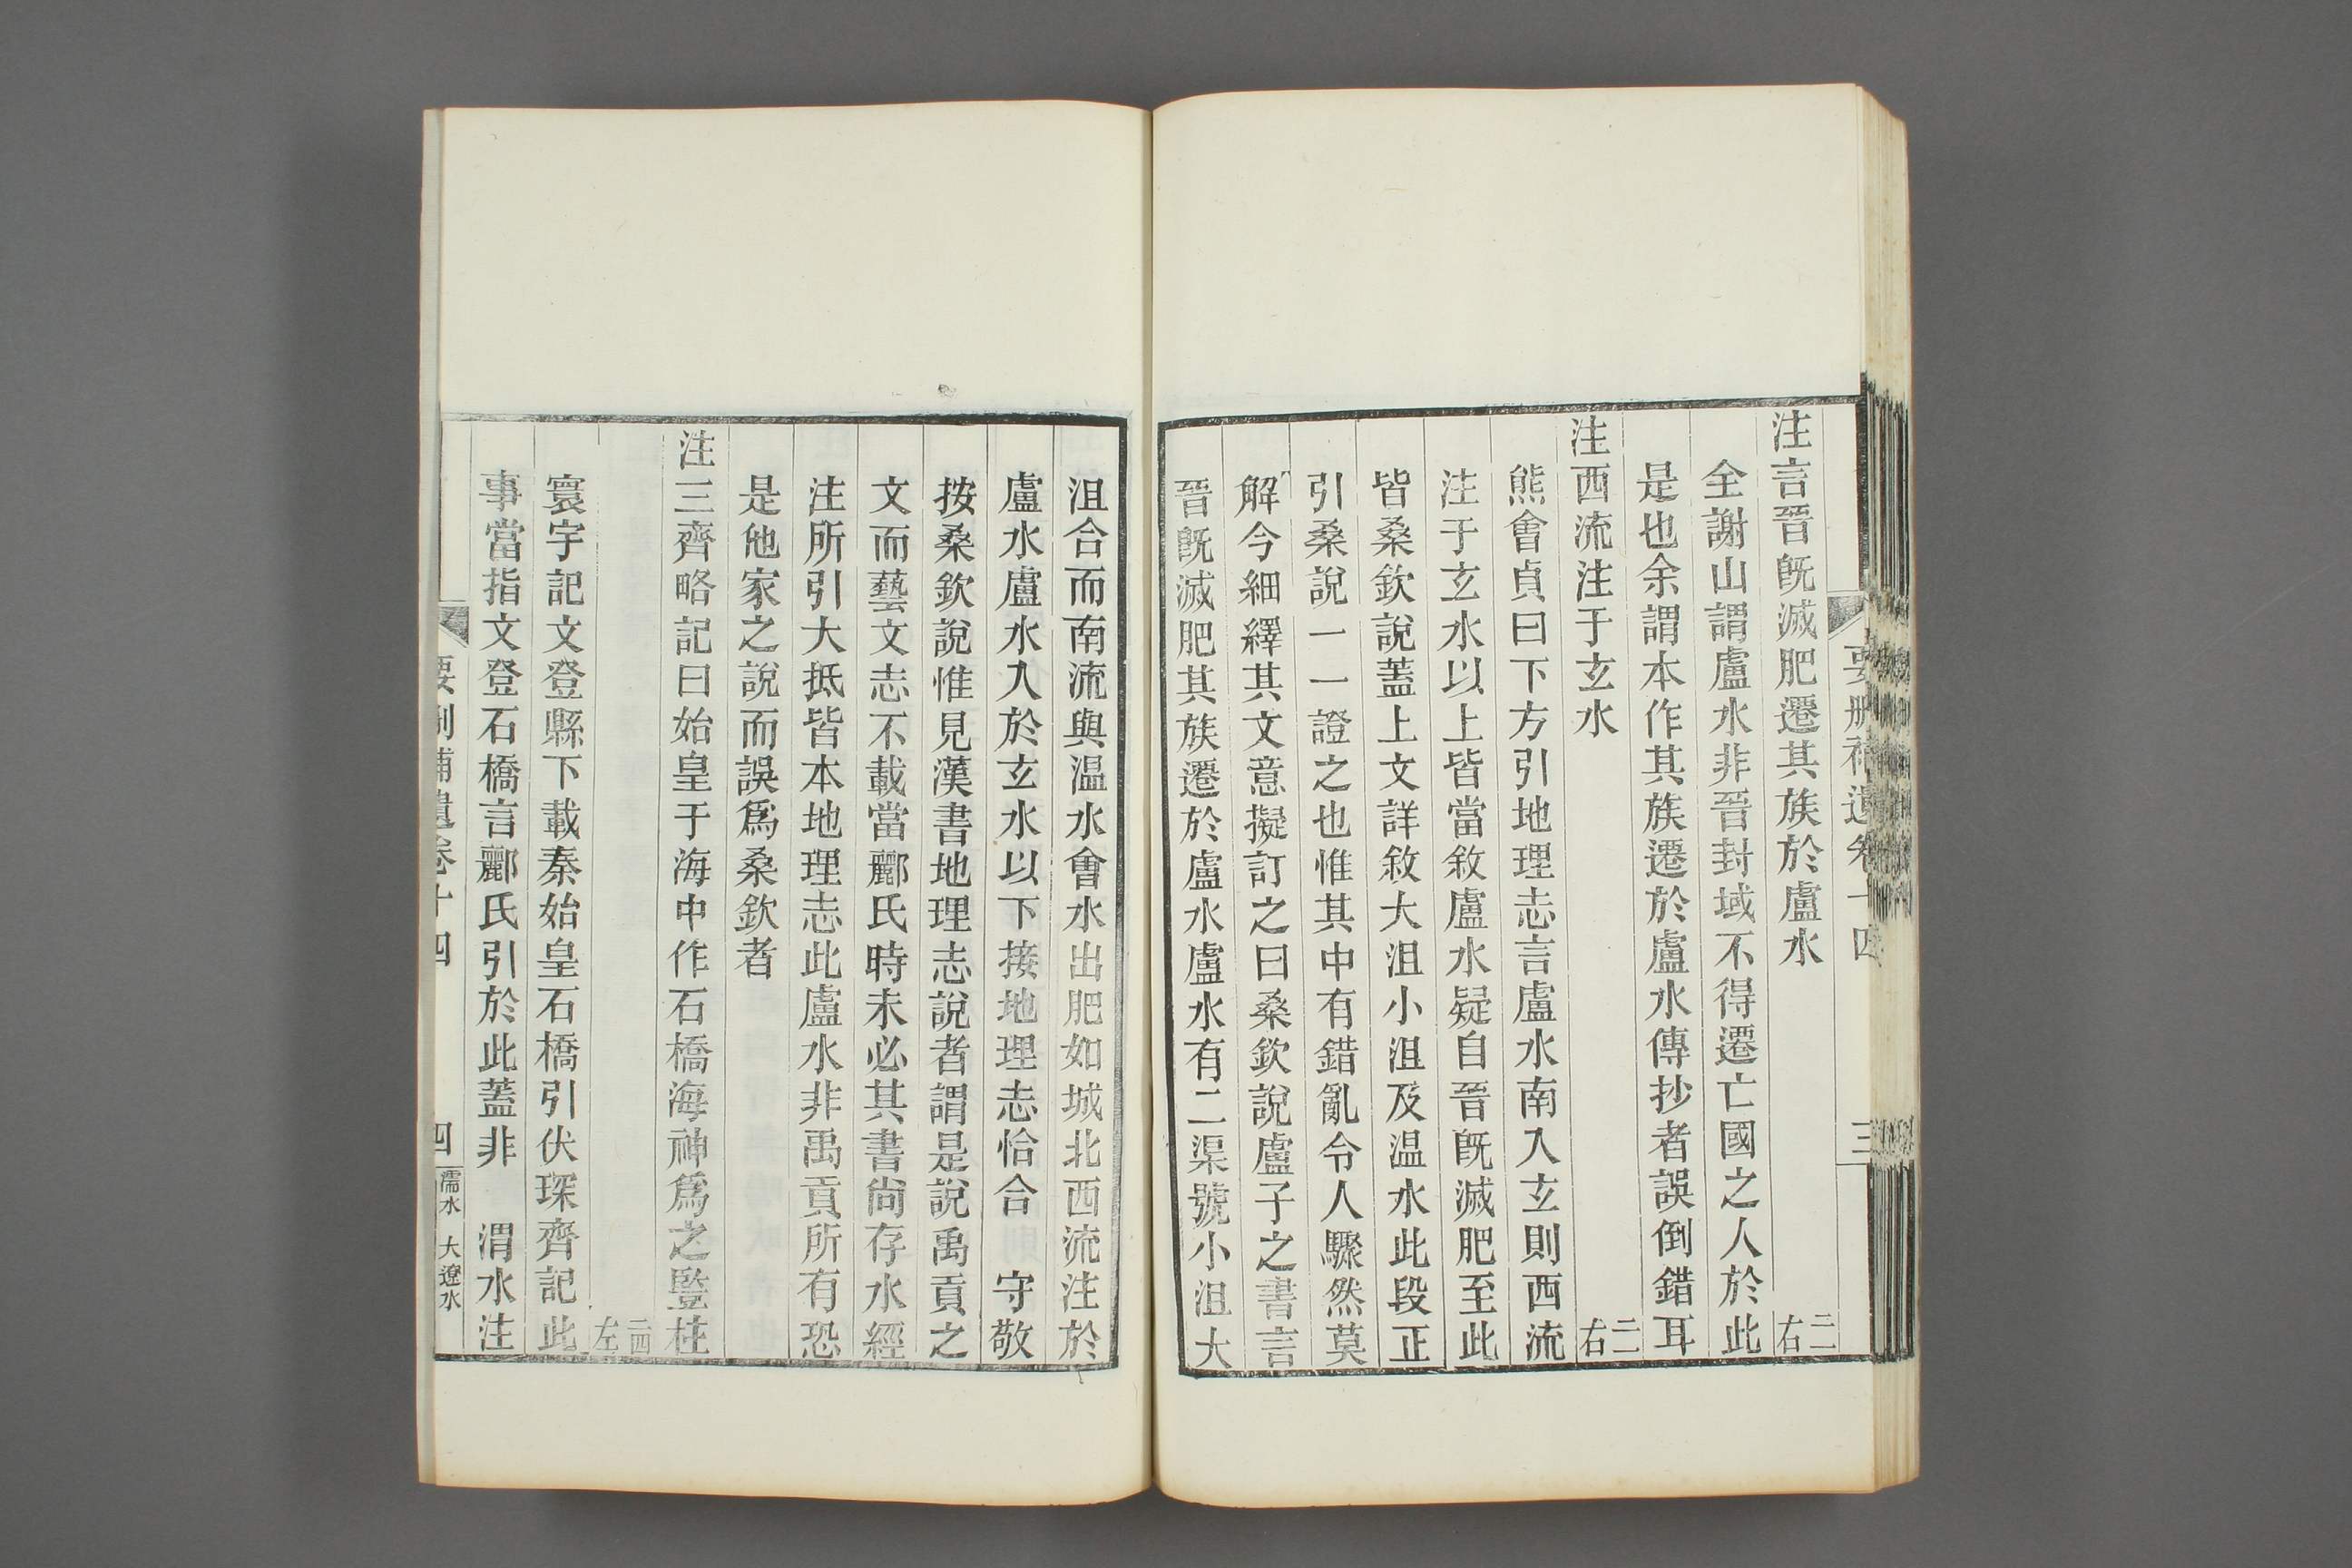 注言晉旣滅肥遷其族於盧水
二二右
全謝山謂盧水非晉封域不得遷亡國之人於此
是也余謂本作其族遷於盧水傳抄者誤倒錯耳
注西流注于玄水
二二右
熊會貞曰下方引地理志言盧水南入玄則西流
注于玄水以上皆當敘盧水疑自晉旣滅肥至此
皆桑欽說蓋上文詳敘大沮小沮及温水此段正
引桑說一一證之也惟其中有錯亂令人驟然莫
解今細繹其文意擬訂之曰桑欽說盧子之書言
晉旣滅肥其族遷於盧水盧水有二渠號小沮大
沮合而南流與温水會水出肥如城北西流注於
盧水盧水入於玄水以下接地理志恰合 守敬
按桑欽說惟見漢書地理志說者謂是說禹貢之
文而藝文志不載當酈氏時未必其書尙存水經
注所引大抵皆本地理志此盧水非禹貢所有恐
是他家之說而誤爲桑欽者
注三齊略記曰始皇于海中作石橋海神爲之豎柱
左
寰宇記文登縣下載秦始皇石橋引伏琛齊記此
事當指文登石橋言酈氏引於此蓋非 渭水注
要刪補遺卷十四
四
濡水 大遼水